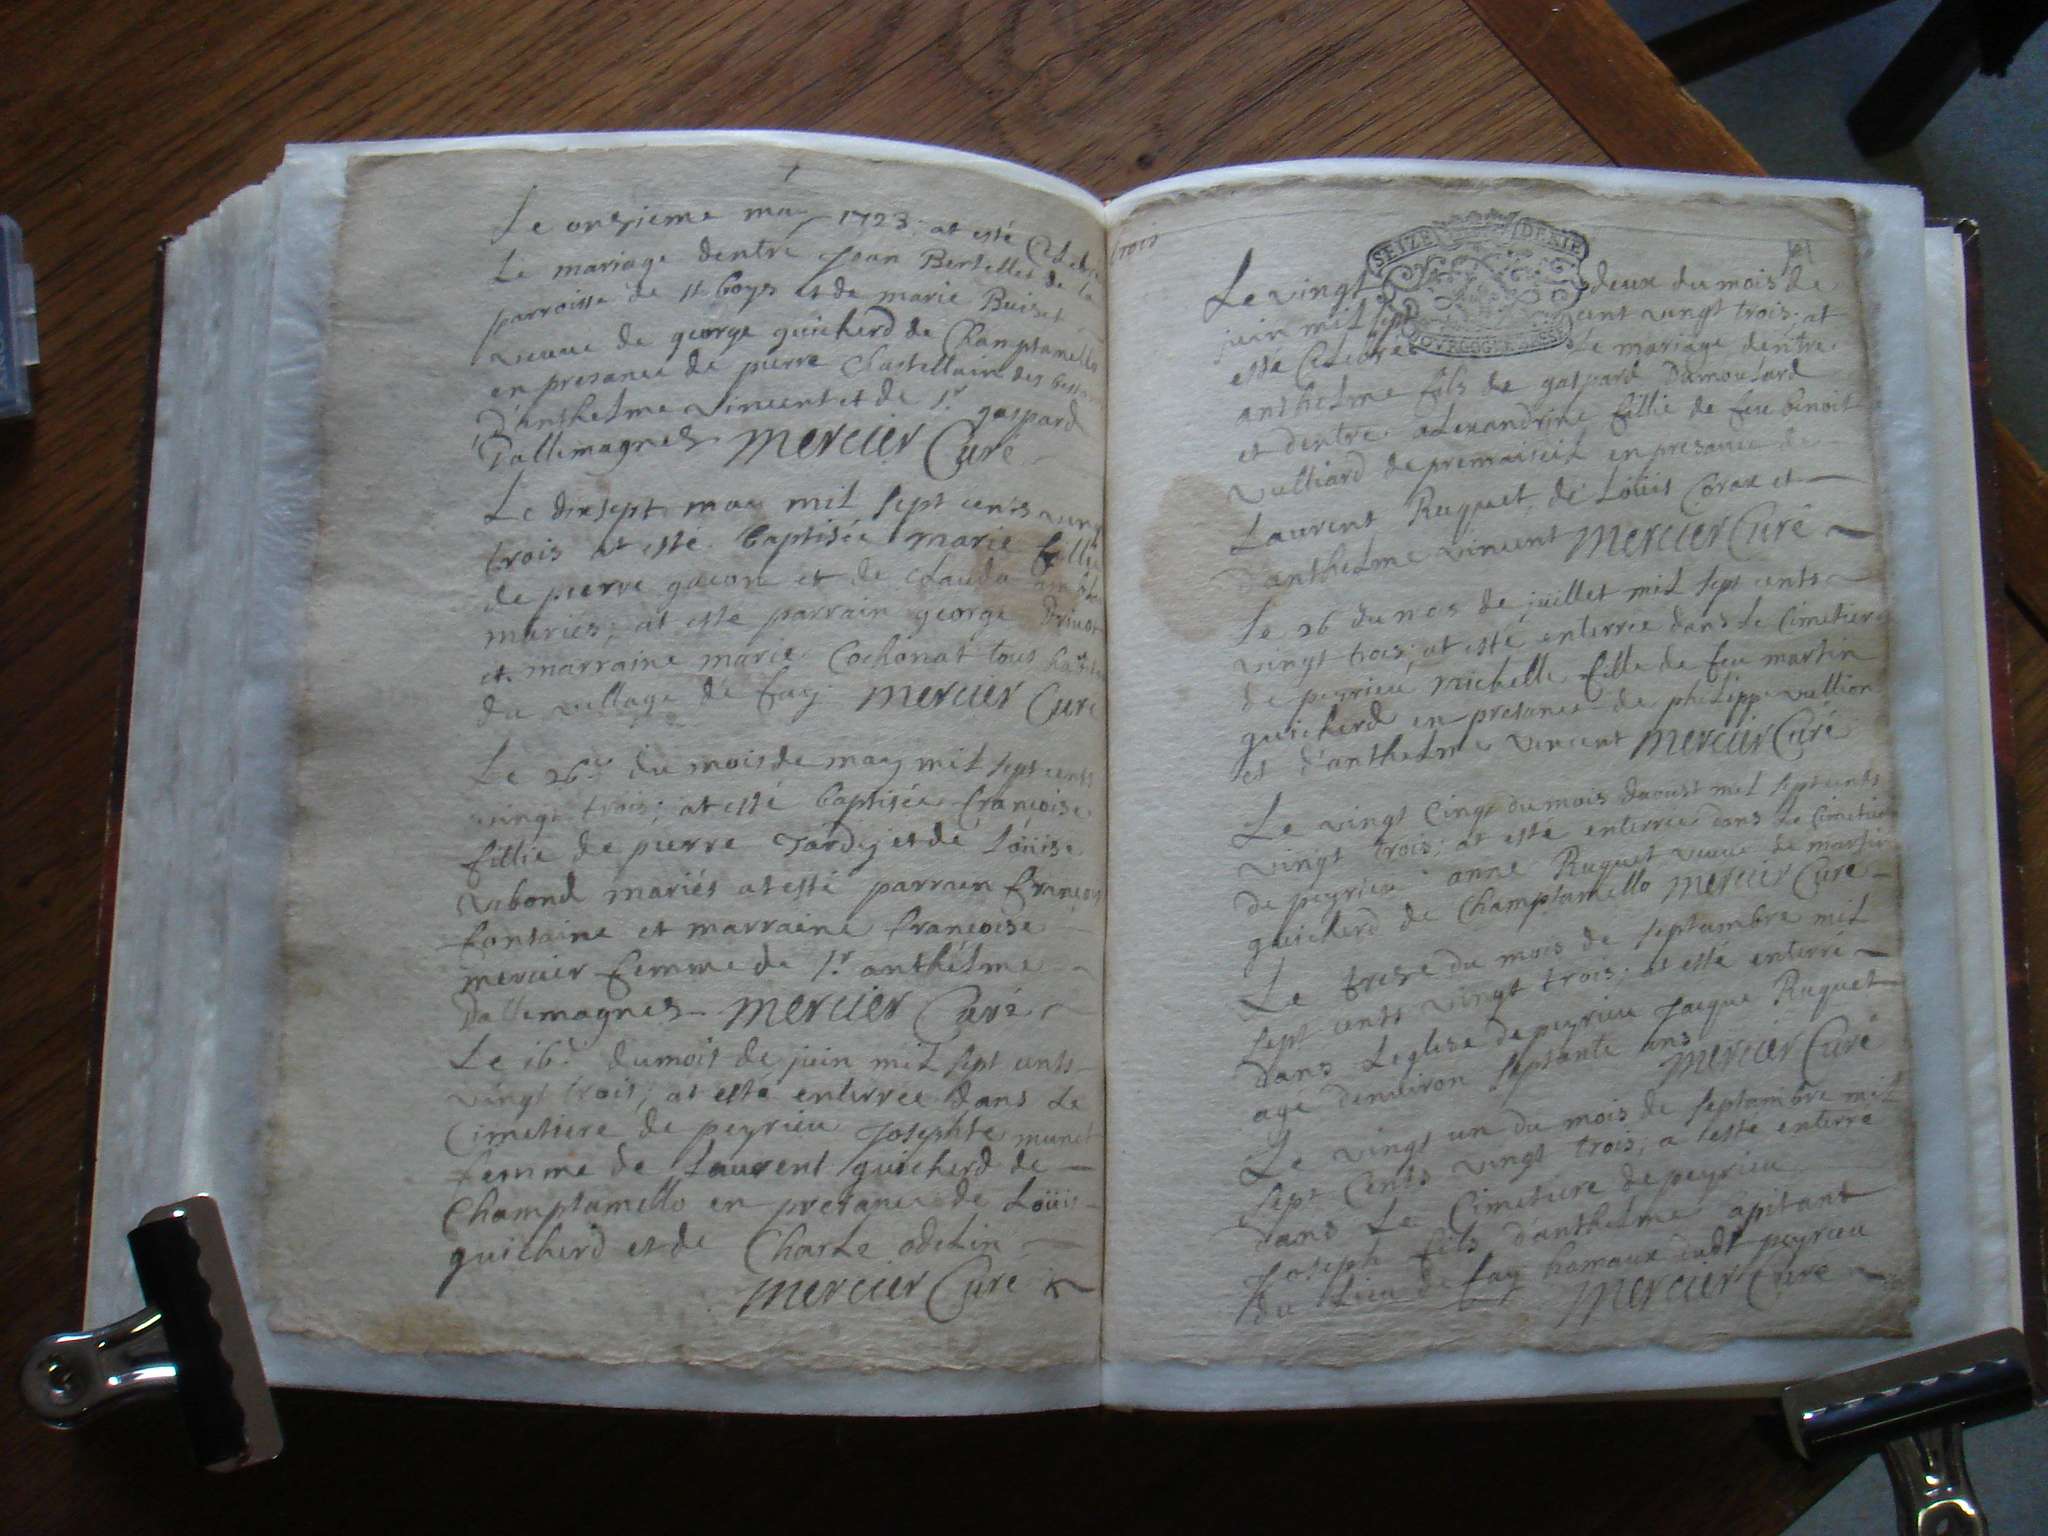 Le onzieme may 1723; at esté Celebré
Le mariage dentre Jean Bertellet de la
parroisse de st boys et de marie Buiset
veuve de george guicherd de Champtamello
en presance de pierre Chastellain des
D'anthelme vincent et de sr. gaspard
Dallemagnes mercier Curé
Le dixsept may mil sept cents vingt
trois at esté baptisée marie fillie
de pierre gacon et de Clauda
mariés; at esté parrain george Drivon
et marraine marie Cochonat tous
du village de fay mercier Curé
Le 26e. du mois de may mil sept cents
vingt trois; at esté baptisée françoise
fillie de pierre Tardy et de Loüise
vibond mariés at esté parrain françois
fontaine et marraine françoise
mercier femme de sr. anthelme
Dallemagnes mercier Curé
Le 16e. du mois de juin mil sept cents
vingt trois; at esté enterrée dans Le
Cimetiere de peyrieu Josephte munet
femme de Laurent guicherd de
Champtamello en presance de Loüis
guicherd et de Charle odelin
mercier Curé
trois
SEIZE DENIE
BOVRGOGNE
Le vingt deux du mois de
juin mil sept cent vingt trois; at
esté Celebré Le mariage dentre
anthelme fils de gaspard Dumoulard
et dentre alexandrine fillie de feu benoit
vulliard de premeisel en presance de
Laurent Ruquet, de Loüis Corax et
d'anthelme vincent mercier Curé
Le 26 du mes de juillet mil sept cents
vingt trois; at esté enterrée dans Le Cimetiere
de peyrieu michelle fille de feu martin
guicherd en presance de philippe vullion
et d'anthelme vincent mercier Curé
Le vingt Cinq du mois daoust mil sept cents
vingt trois; at esté enterrée dans Le Cimetiere
de peyrieu anne Ruquet veuve de martin
guicherd de Champtamello mercier Curé
Le treze du mois de septambre mil
sept cents vingt trois; at esté enterré
dans Leglise de peyrieu Jacque Ruquet
agé denviron septante ans
mercier Curé
Le vingt un du mois de septambre mil
sept Cents vingt trois; a testé enterré
dans Le Cimetiere de peyrieu
Joseph fils d'anthelme apitant
du Lieu de fay hamaux dudt peyrieu
mercier Curé